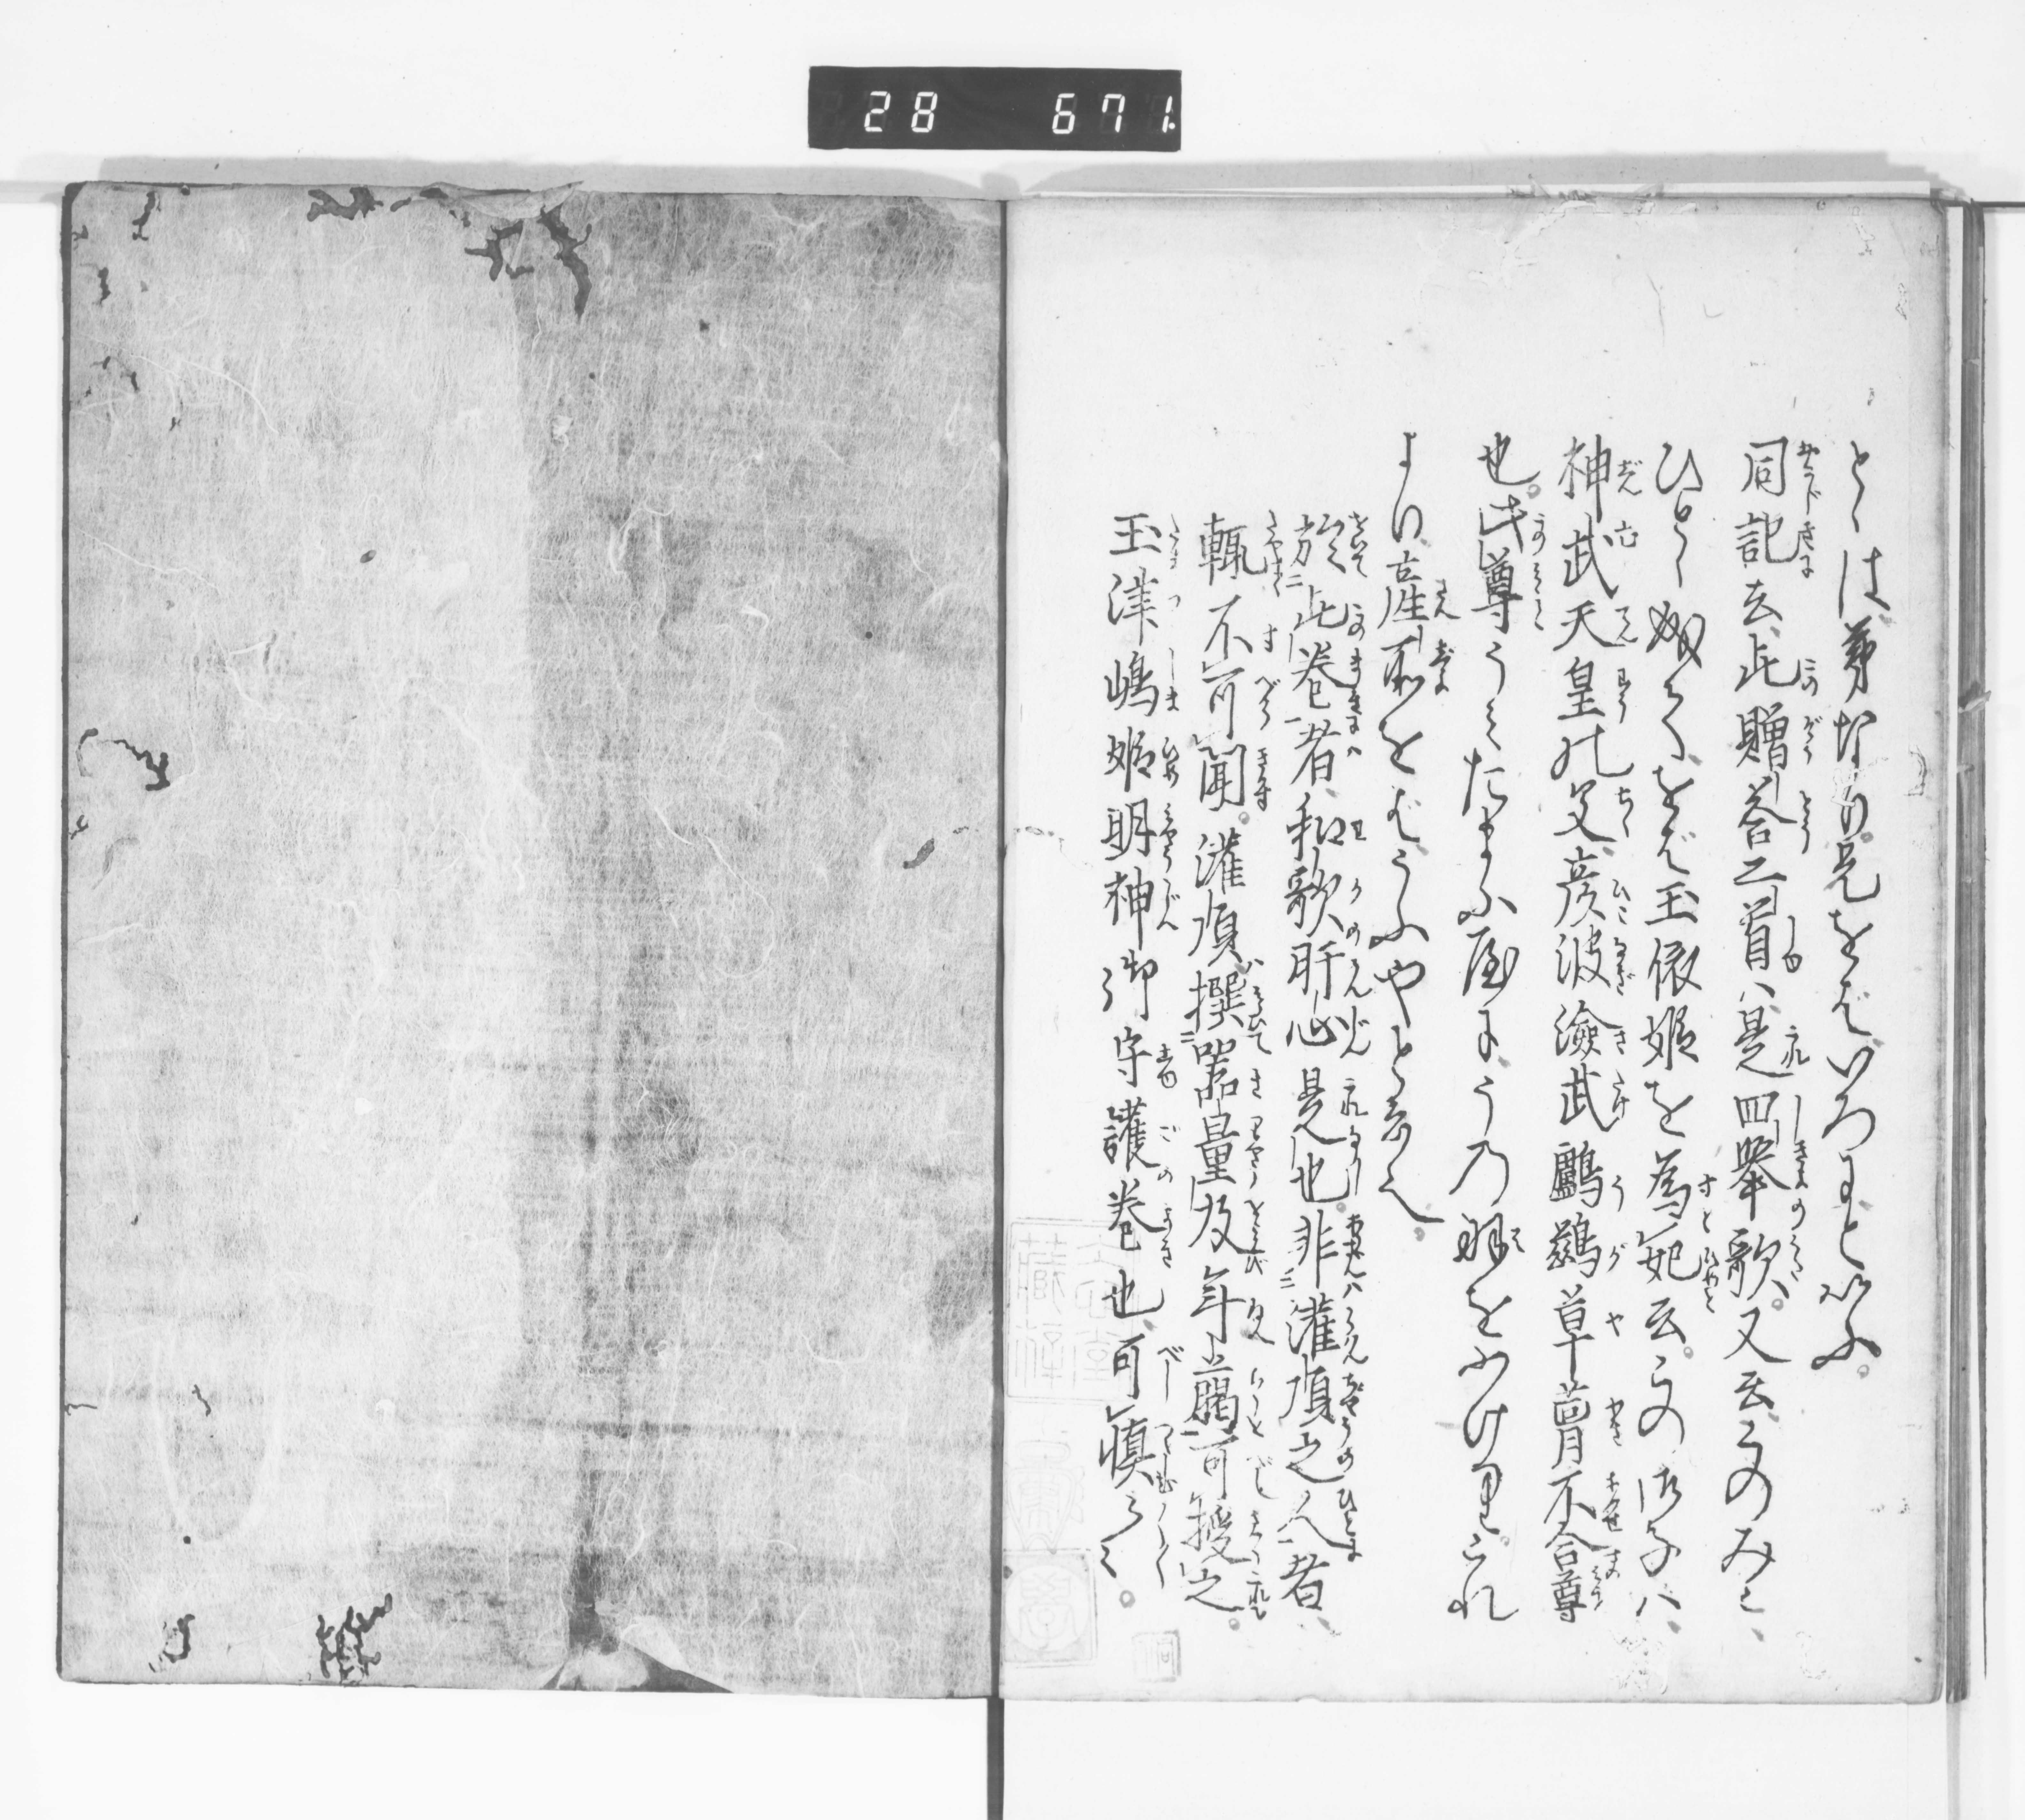 28 671
とは弟なり兄をばいろねといふ。
同記云此贈答二首ハ是四擧歌。又云、このみこ、
ひとゝなりてをば玉依姫を為妃云。この御子ハ、
神武天皇の父彦波瀲武鸕鷀草葺不合尊
也。此尊うみたまふ屋にうの羽をふけり。これ
より、産所をばうふやといへり。
於此巻者、和歌肝心是也。非灌頂之人者、
輙不可聞。灌頂撰器量及年﨟可授之。
玉津嶋姫明神御守護巻也、可慎々々。